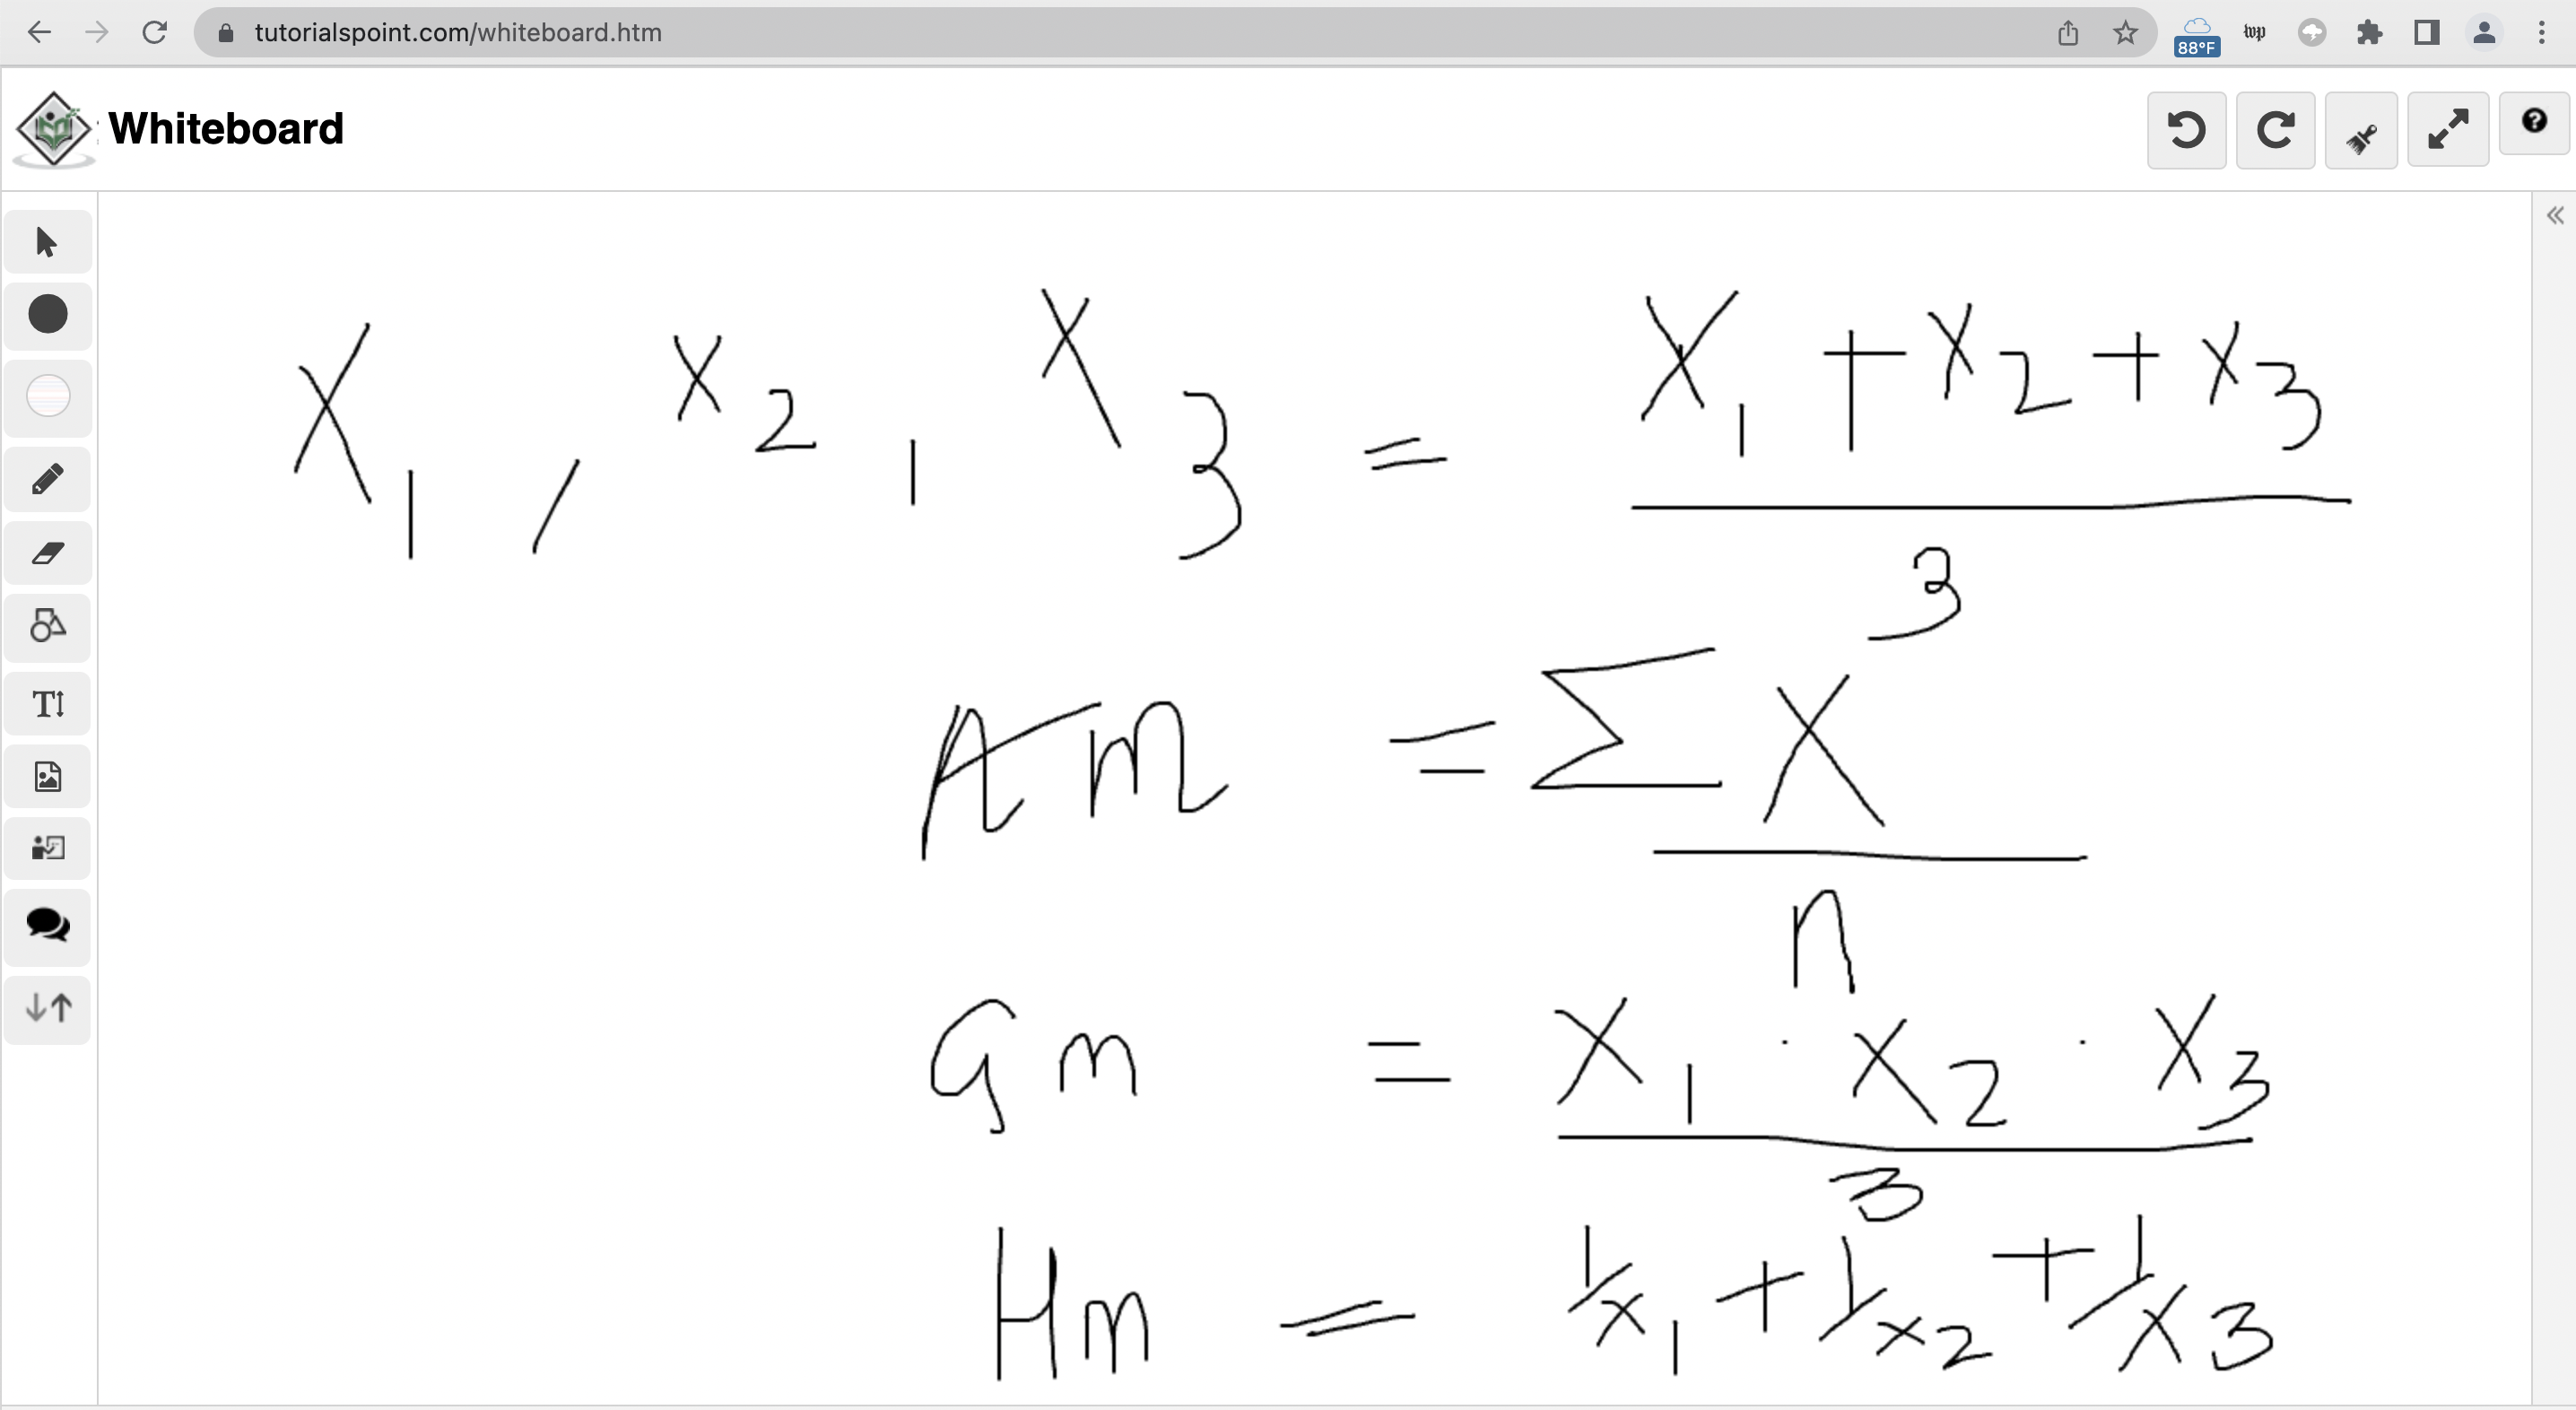 tutorialspoint.com/whiteboard.htm
88°F
Whiteboard
X1, X2, X3 = X1 + X2 + X3
3
Am = ∑ X
n
Gm = X1 · X2 · X3
3
Hm = 1/X1 + 1/X2 + 1/X3